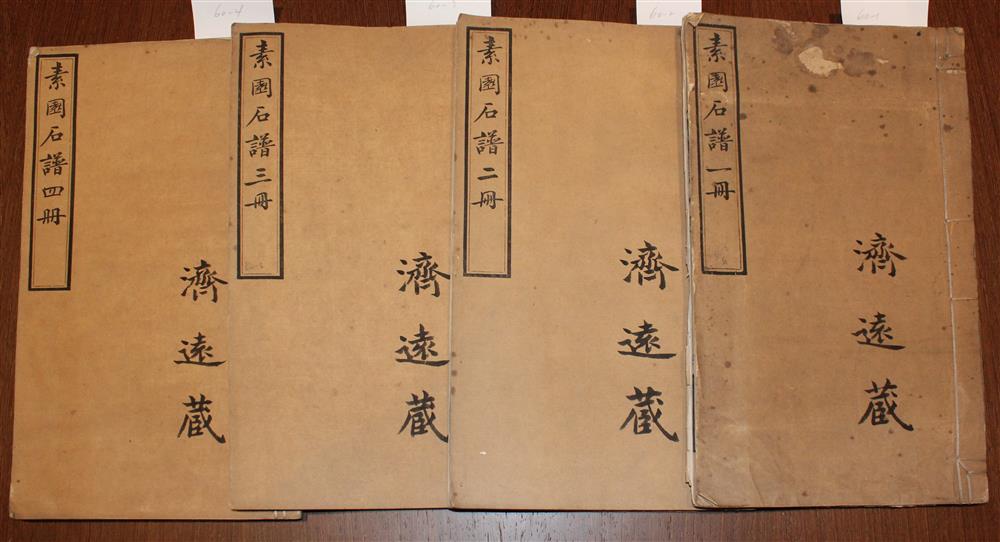 素園石譜一冊
濟遠蔵
素園石譜二冊
濟遠蔵
素園石譜三冊
濟遠蔵
素園石譜四冊
濟遠蔵
60-4
60-3
60-2
60-1